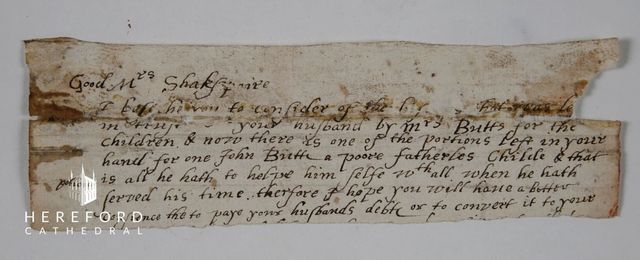 Good Mrs Shakspaire
I beseche you to consider of the
in trust your husband by mrs Butts for the
children, & now there is one of the portions left in your
hand for one John Butts a poore fatherles Childe & that
is all he hath to helpe him selfe wth all when he hath
served his time. therfore I hope you will have a better
the to paye your husbands debts or to convert it to your
HEREFORD
CATHEDRAL